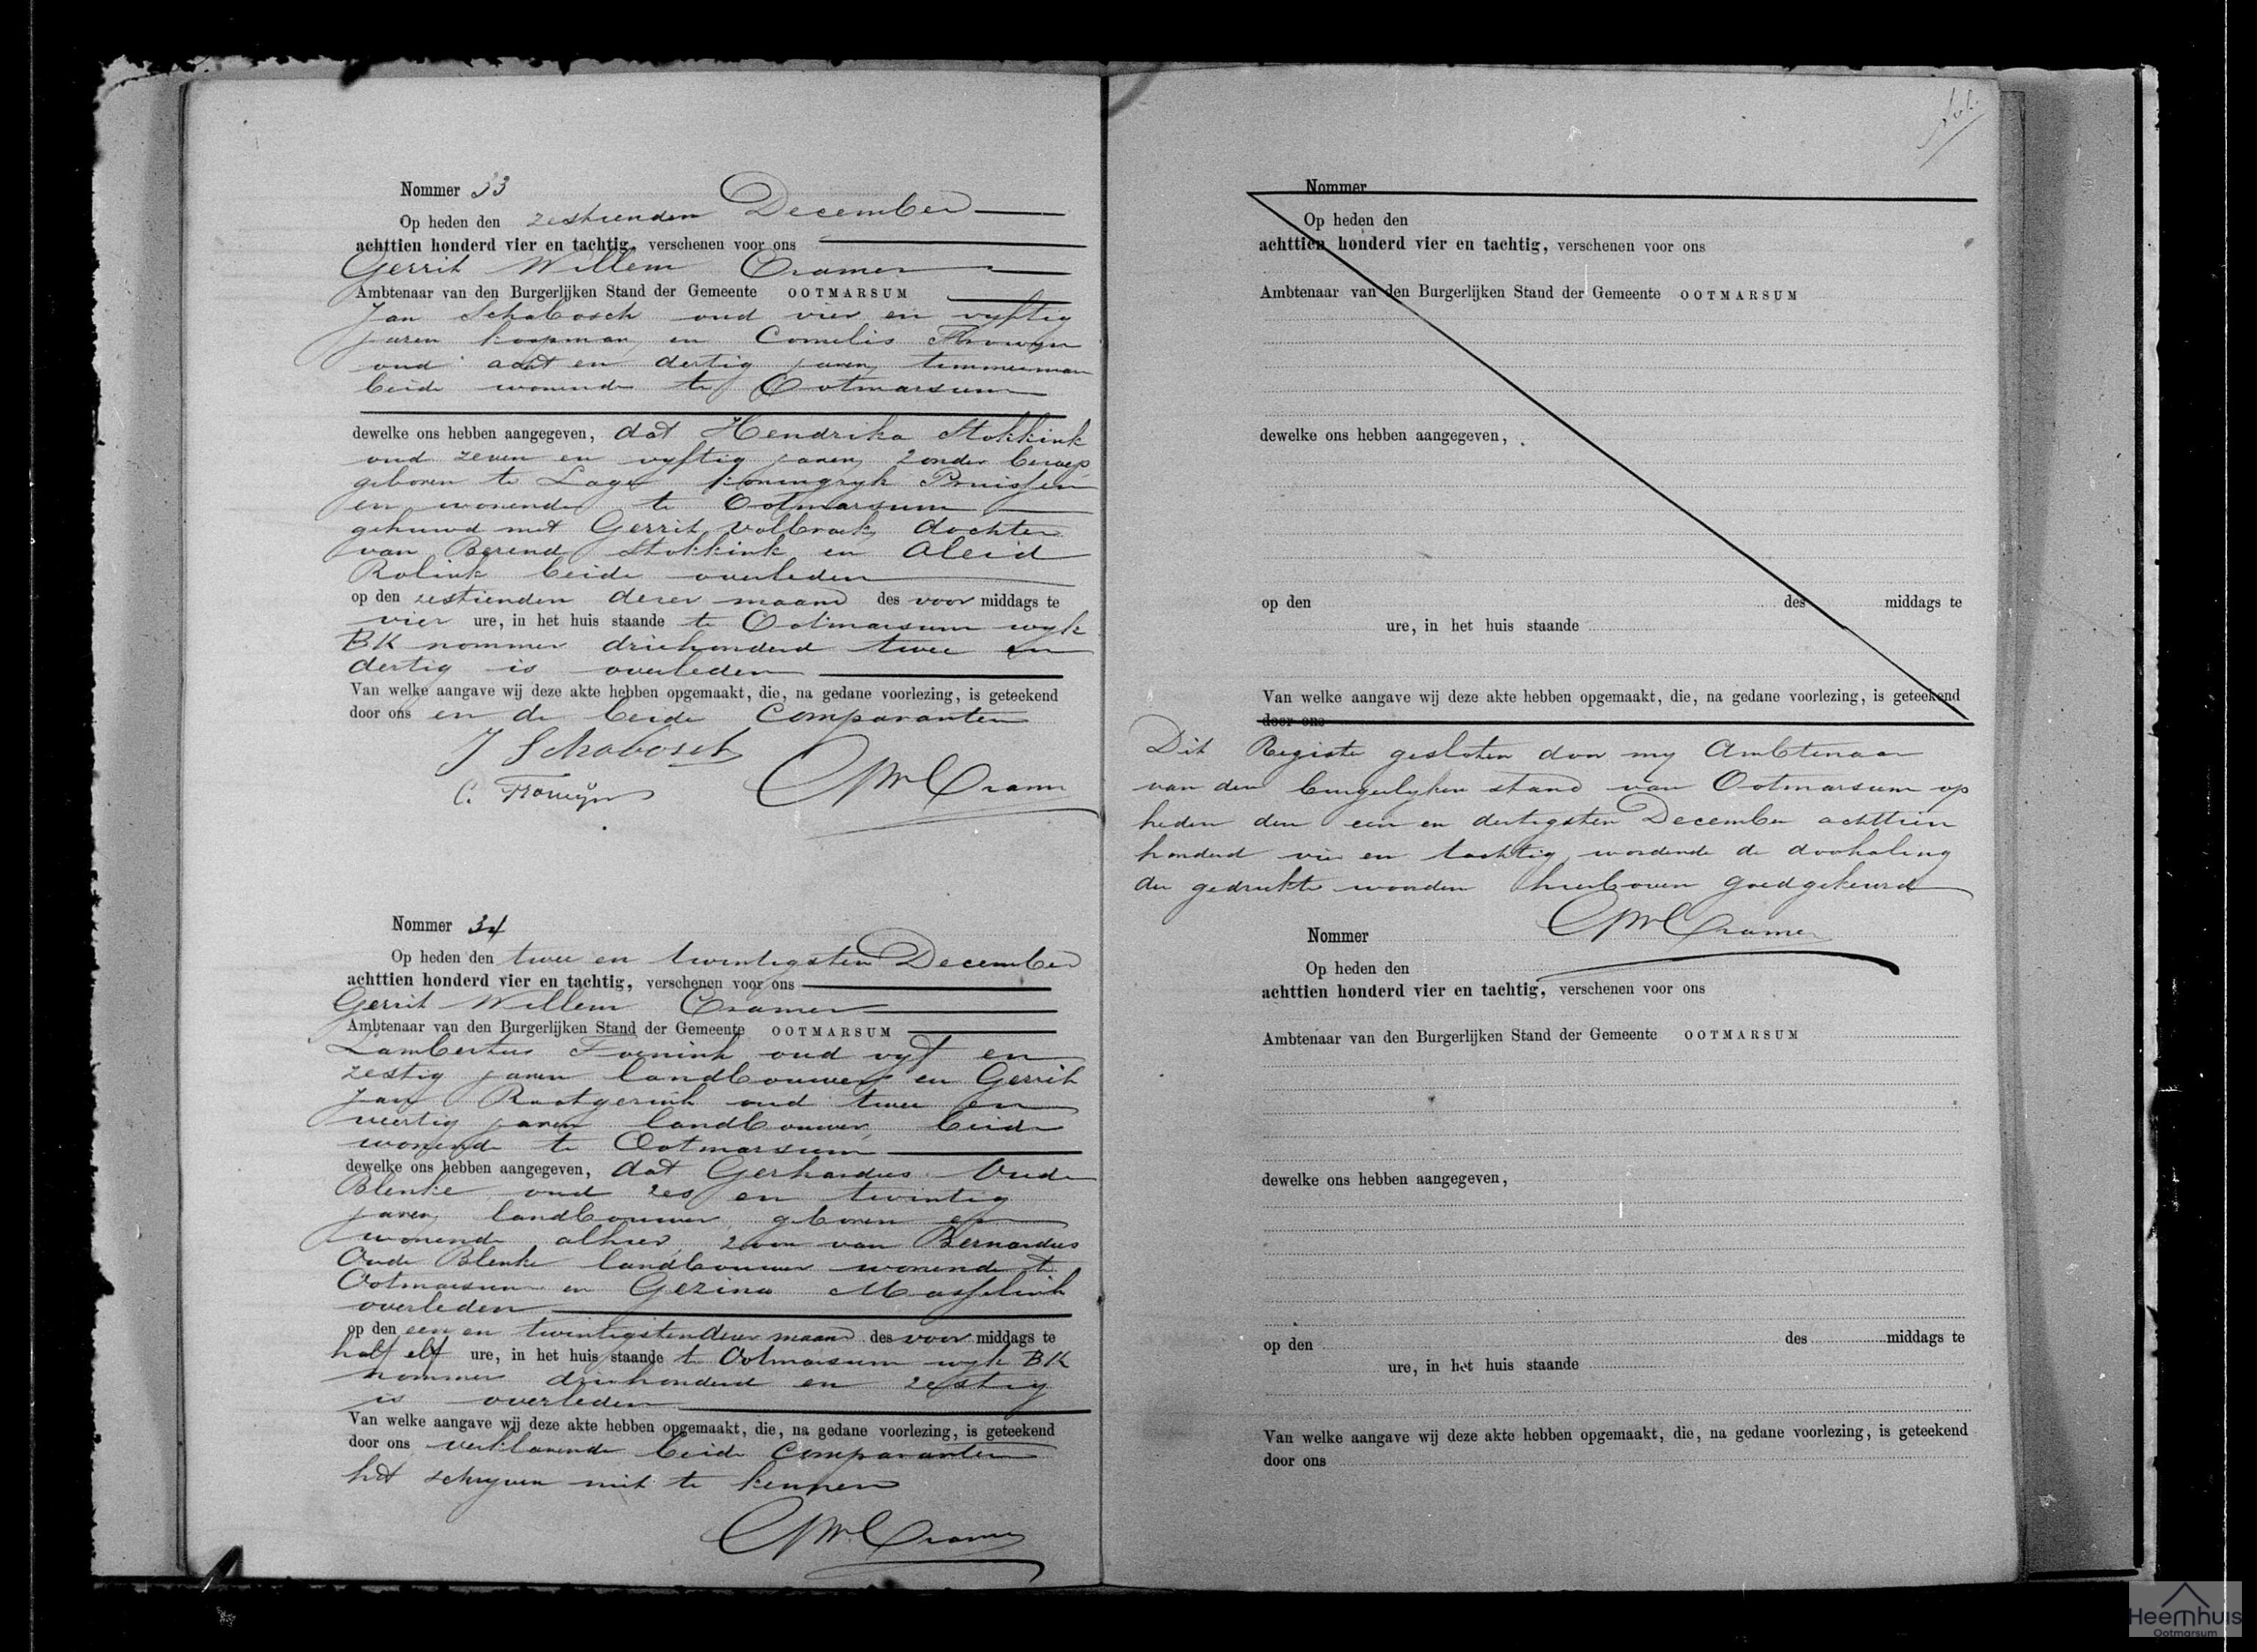 Nommer 33
Op heden den zestienden December
achttien honderd vier en tachtig, verschenen voor ons
Gerrit Willem Cramer
Ambtenaar van den Burgerlijken Stand der Gemeente OOTMARSUM
Jan Schabosch oud vier en vyftig
jaren koopman en Cornelis
oud acht en dertig jaren timmerman
beide wonende te Ootmarsum
dewelke ons hebben aangegeven, dat Hendrika Stokkink
oud zeven en vyftig jaren, zonder beroep
geboren te Lage koningryk Pruissen
en wonende te Ootmarsum
gehuwd met Gerrit Volbroek dochter
van Berend Stokkink en Aleid
Rolink beide overleden
op den zestienden dezer maand des voor middags te
vier ure, in het huis staande te Ootmarsum wyk
BK nommer driehonderd twee en
dertig is overleden
Van welke aangave wij deze akte hebben opgemaakt, die, na gedane voorlezing, is geteekend
door ons en de beide Comparanten
J Schabosch
C. GW Cramer
Nommer 34
Op heden den twee en twintigsten December
achttien honderd vier en tachtig, verschenen voor ons
Gerrit Willem Cramer
Ambtenaar van den Burgerlijken Stand der Gemeente OOTMARSUM
Lambertus oud vyf en
zestig jaren landbouwer en Gerrit
Jan Rootgerink oud twee en
veertig jaren landbouwer, beide
wonende te Ootmarsum
dewelke ons hebben aangegeven, dat Gerhardus Oude
Blenke oud zes en twintig
jaren, landbouwer, geboren en
wonende alhier, zoon van Bernardus
Oude Blenke landbouwer wonende te
Ootmarsum en Gezina Masselink
overleden
op den een en twintigsten dezer maand des voor middags te
half elf ure, in het huis staande te Ootmarsum wyk BK
nommer driehonderd en zestig
is overleden
Van welke aangave wij deze akte hebben opgemaakt, die, na gedane voorlezing, is geteekend
door ons verklarende beide Comparanten
het schryven niet te kennen
GW Cramer
Nommer
Op heden den
achttien honderd vier en tachtig, verschenen voor ons
Ambtenaar van den Burgerlijken Stand der Gemeente OOTMARSUM
dewelke ons hebben aangegeven,
op den des middags te
ure, in het huis staande
Van welke aangave wij deze akte hebben opgemaakt, die, na gedane voorlezing, is geteekend
door ons
Dit Register gesloten door my Ambtenaar
van den burgerlyken stand van Ootmarsum op
heden den een en dertigsten December achttien
honderd vier en tachtig, wordende de doorhaling
der gedrukte woorden hierboven goedgekeurd
GW Cramer
Nommer
Op heden den
achttien honderd vier en tachtig, verschenen voor ons
Ambtenaar van den Burgerlijken Stand der Gemeente OOTMARSUM
dewelke ons hebben aangegeven,
op den des middags te
ure, in het huis staande
Van welke aangave wij deze akte hebben opgemaakt, die, na gedane voorlezing, is geteekend
door ons
Heemhuis
Ootmarsum